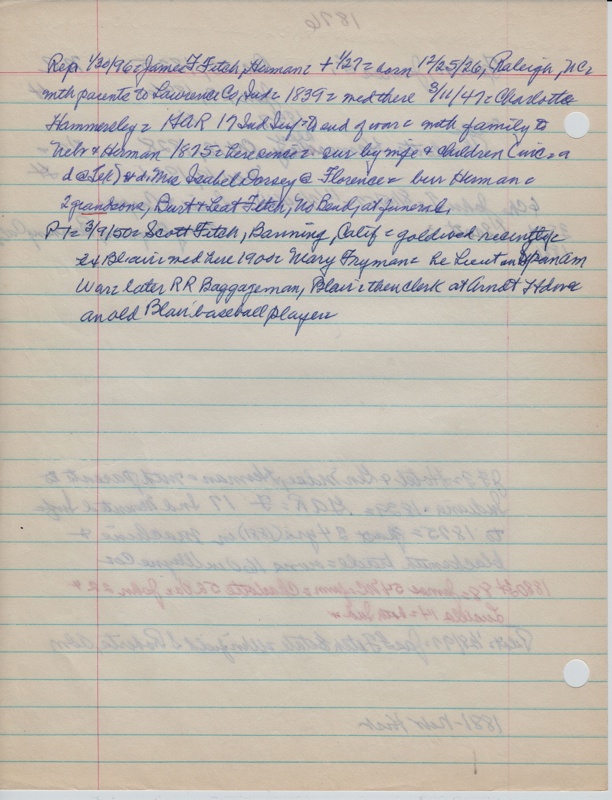 Rep 1/30/96 = James F Fitch, Herman = + 1/27 = born 12/25/26, Raleigh, NC =
mth parents to Lawrence Co, Ind = 1839 = med there 3/11/47 = Charlotte
Hammersley = GAR 17 Ind Inf - to end of war = mth family to
Nebr & Herman 1875 = here since = sur by wife & children (inc = a
d @ Lek) & d. Mrs Isabel Dorsey @ Florence = bur Herman =
2 grandsons, Burt & Lest Fitch, No Bend, at funeral,
PT = 3/9/50 = Scott Fitch, Banning, Calif = gold wed recently =
ex Blair med here 1900 = Mary Fryman = he Lieut in Span Am
War = later RR Baggageman, Blair = then clerk at Arndt Hdwe =
an old Blair baseball player =